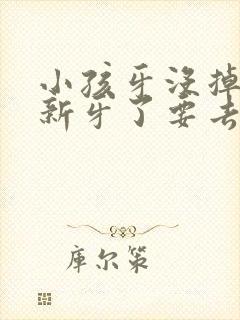 小孩牙没掉
新牙了要去
库尔策